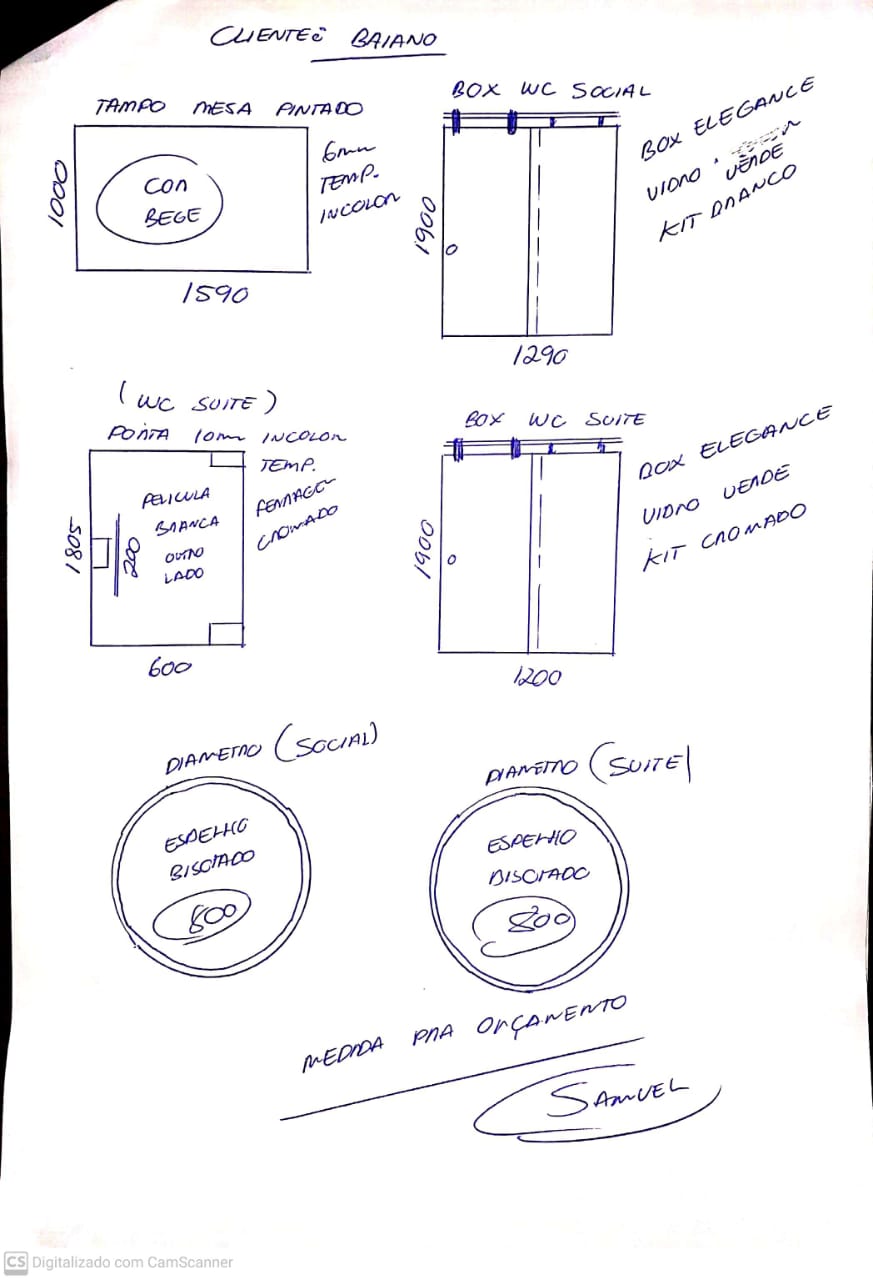 CLIENTE: BAIANO
TAMPO MESA PINTADO
1000
COR
BEGE
6mm
TEMP.
INCOLOR
1590
BOX WC SOCIAL
1900
1290
BOX ELEGANCE
VIDRO VERDE
KIT BRANCO
(WC SUITE)
PORTA 10mm INCOLOR
TEMP.
FERRAGEM
CROMADO
1805
200
PELICULA
BRANCA
OUTRO
LADO
600
BOX WC SUITE
1900
1200
BOX ELEGANCE
VIDRO VERDE
KIT CROMADO
DIAMETRO (SOCIAL)
ESPELHO
BISOTADO
800
DIAMETRO (SUITE)
ESPELHO
BISOTADO
800
MEDIDA PRA ORÇAMENTO
SAMUEL
CS Digitalizado com CamScanner